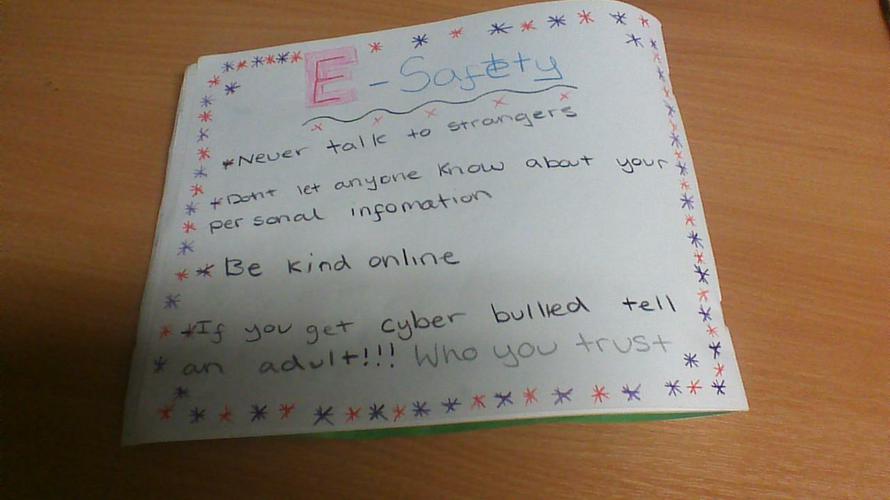 E-Safety
*Never talk to strangers
*Dont let anyone know about your
personal infomation
*Be kind online
*If you get cyber bullied tell
an adult!!! Who you trust